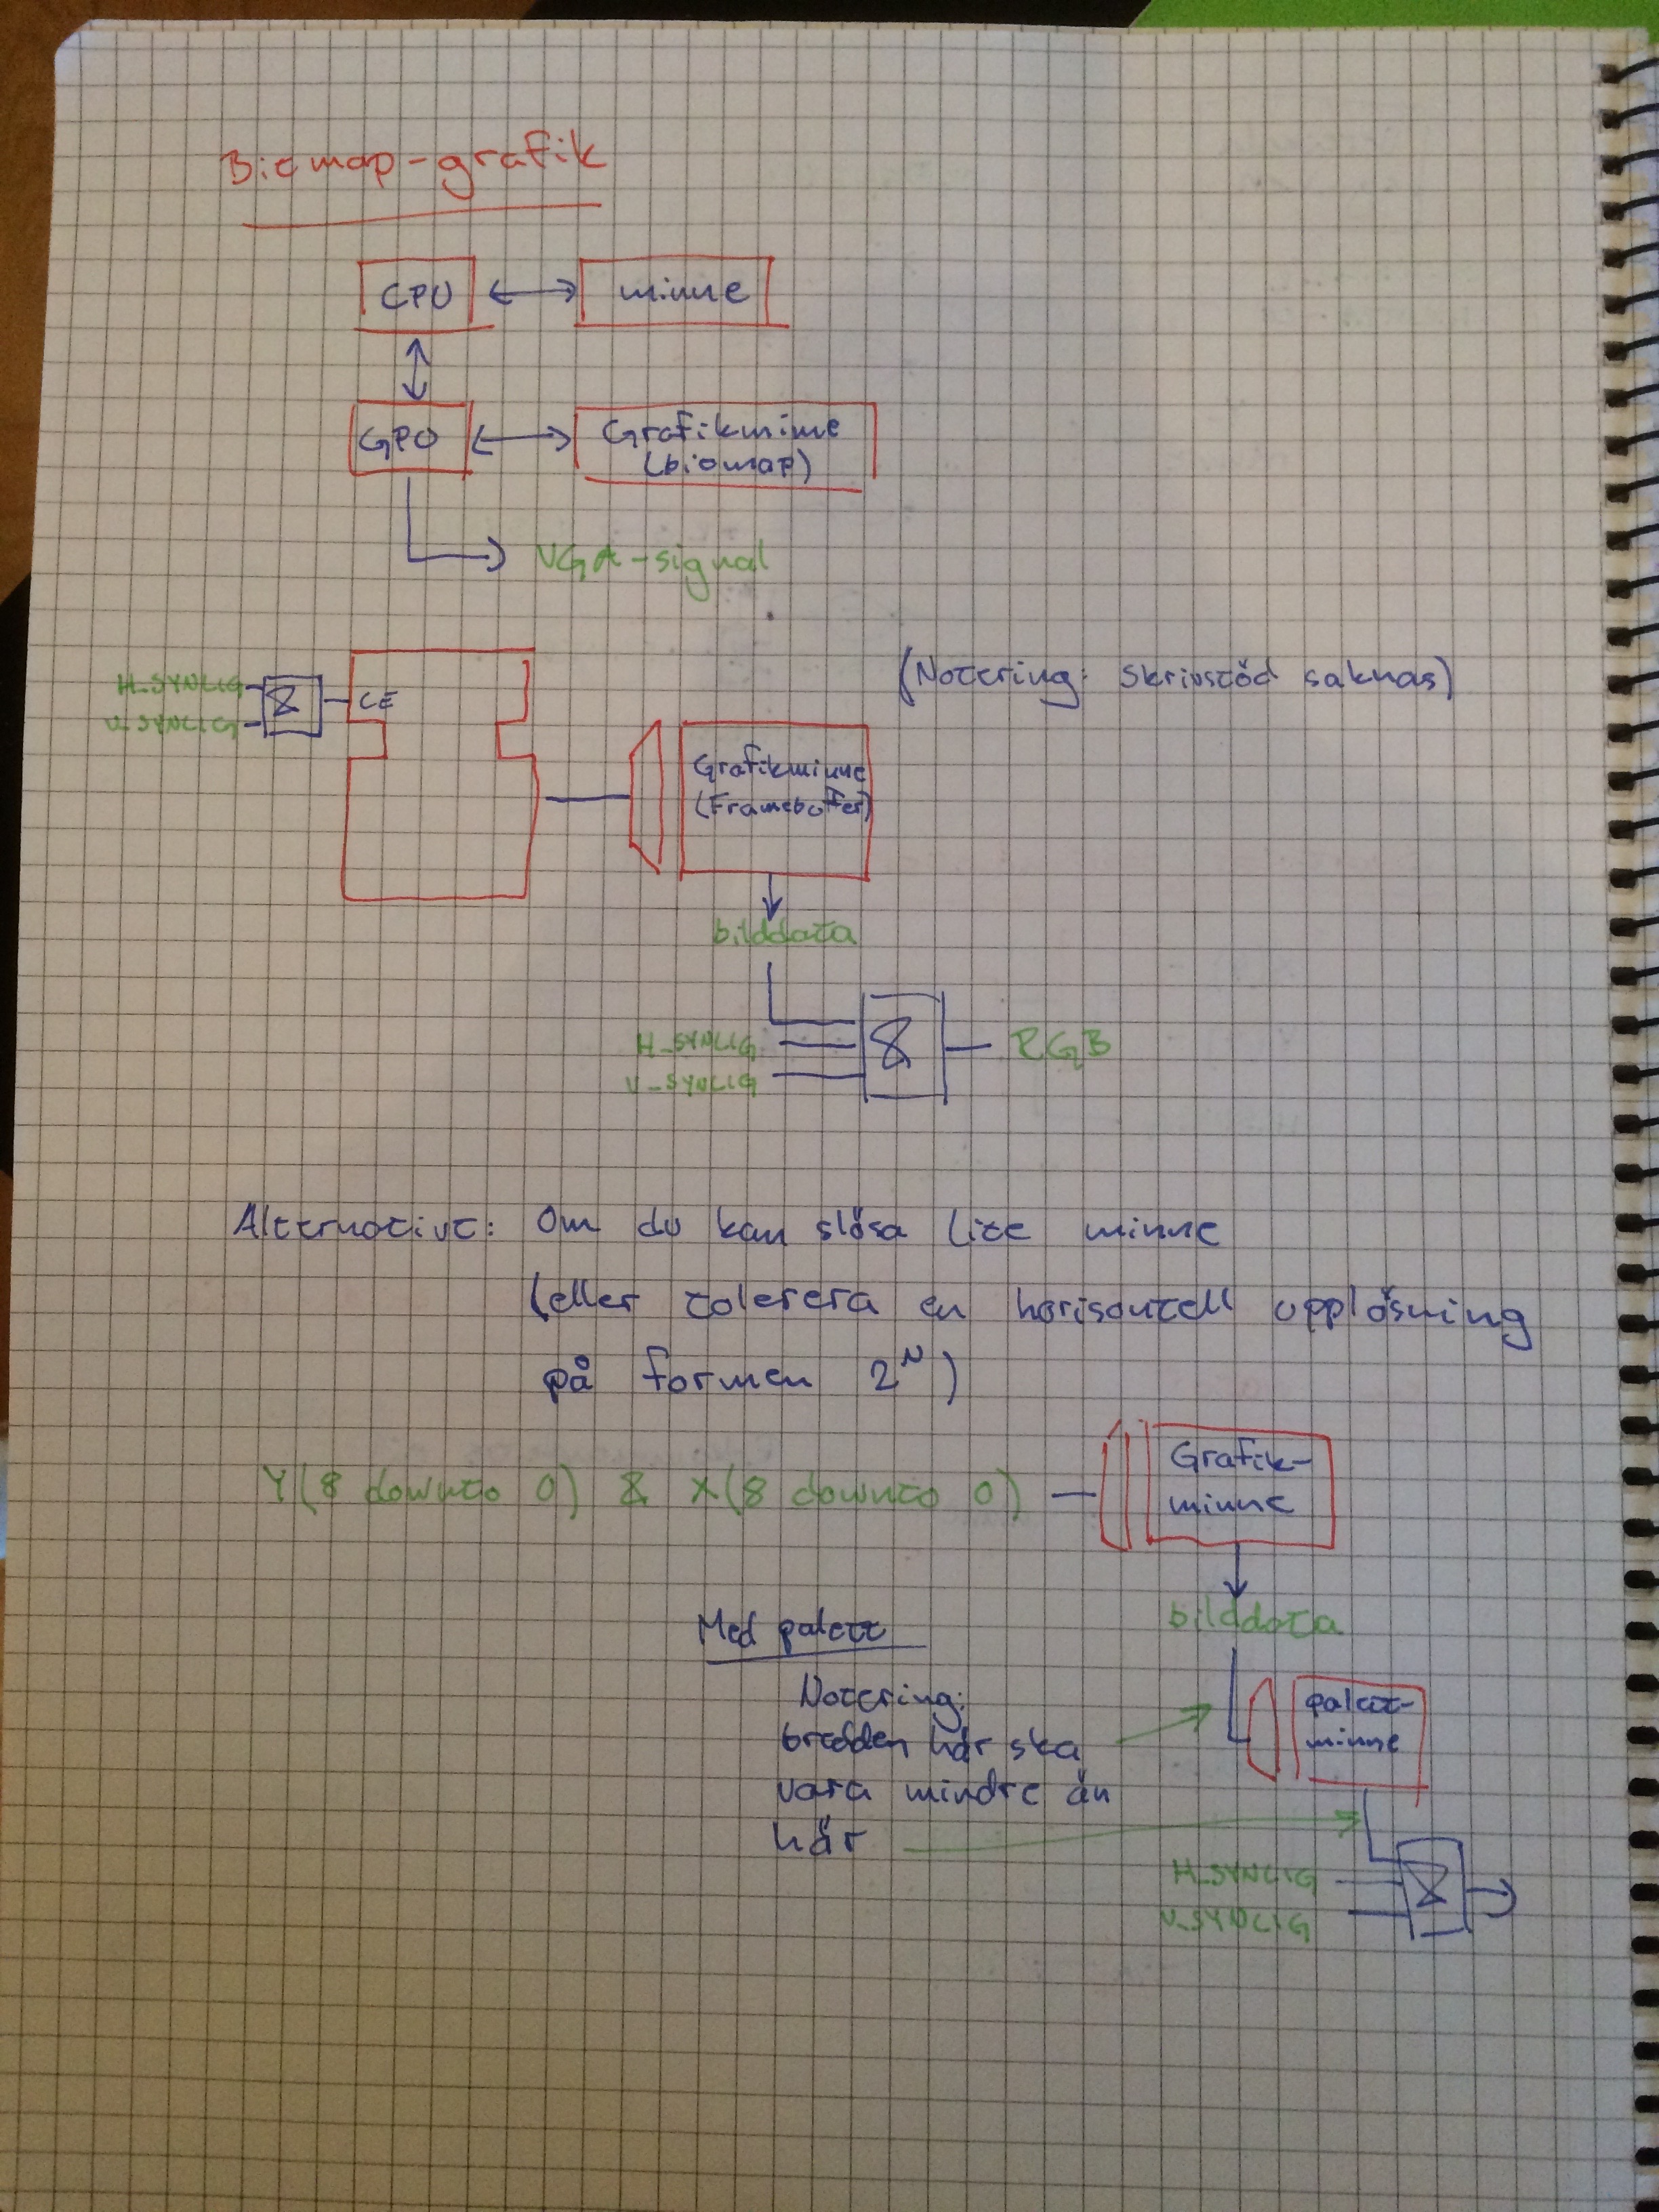 Bitmap-grafik
CPU
minne
GPU
Grafikminne
(bitmap)
VGA-signal
(Notering: Skrivstöd saknas)
H_SYNLIG
V_SYNLIG
&
CE
Grafikminne
(Framebuffer)
bilddata
H_SYNLIG
V_SYNLIG
&
RGB
Alternativt: Om du kan slösa lite minne
(eller tolerera en horisontell upplösning
på formen 2^N)
Y(8 downto 0) & X(8 downto 0)
Grafik-
minne
bilddata
Med palett
Notering:
bredden här ska
vara mindre än
här
palett-
minne
H_SYNLIG
V_SYNLIG
&